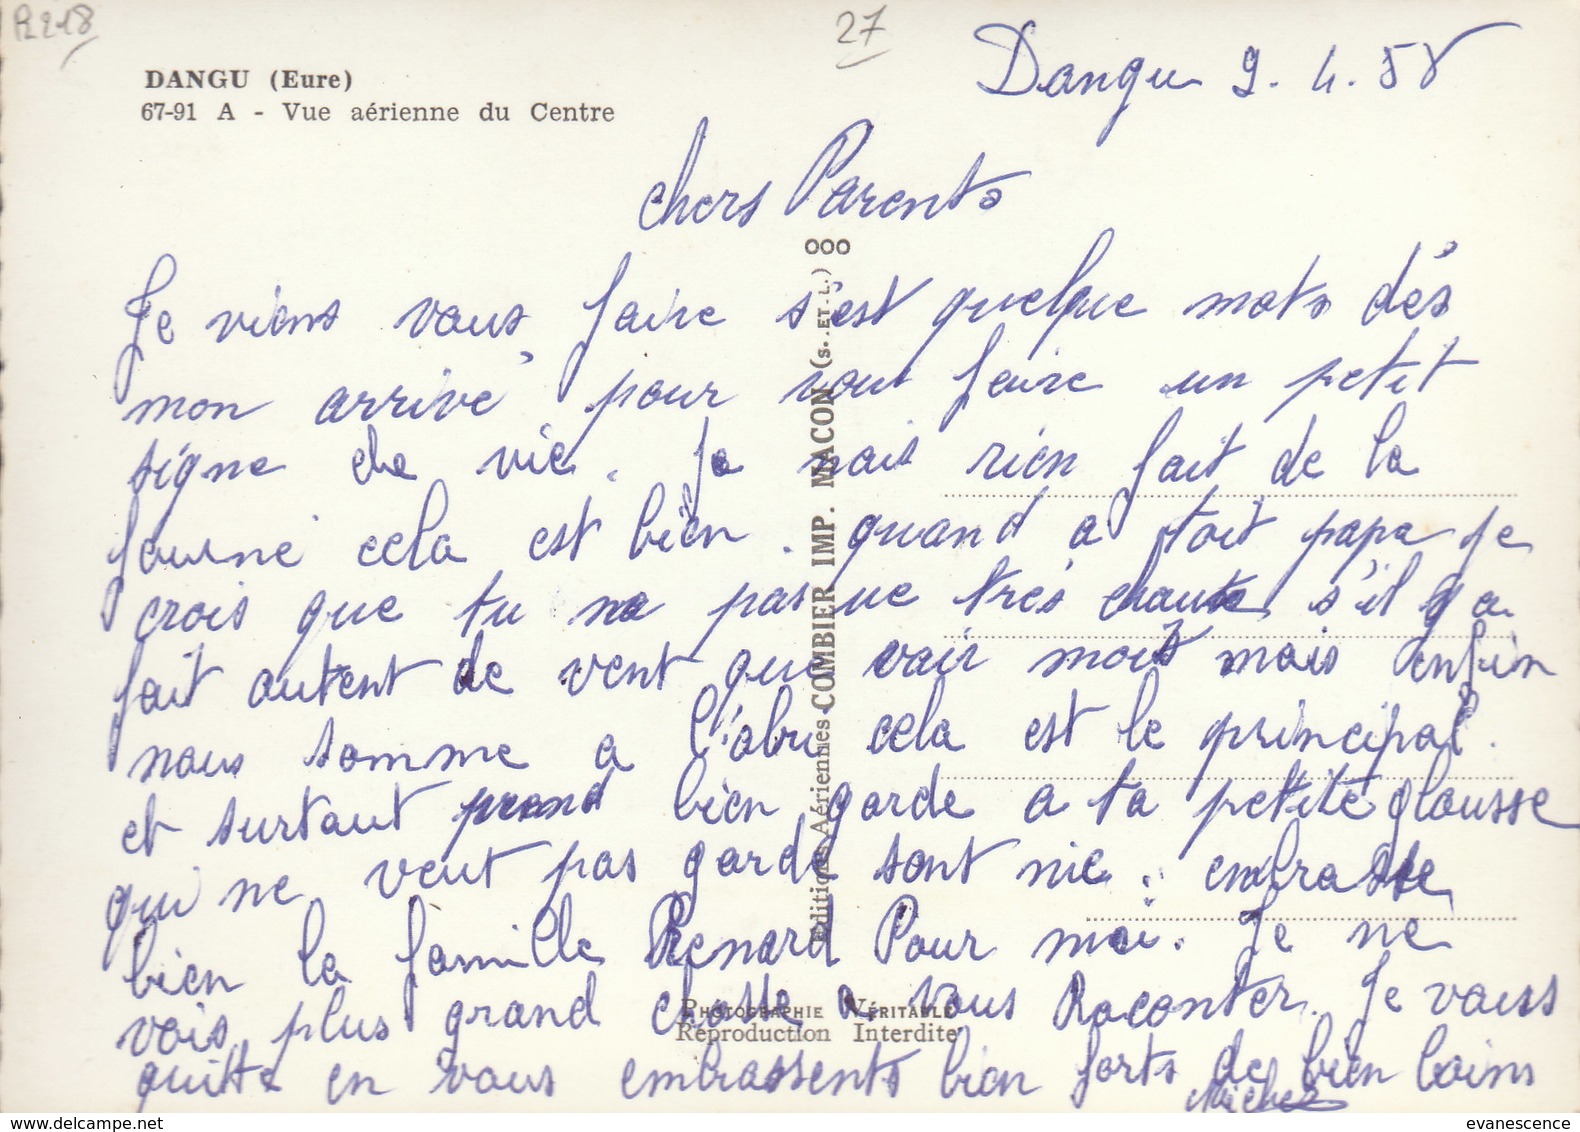 R218
27
DANGU (Eure)
67-91 A - Vue aérienne du Centre
Dangu 9. 4. 58
chers Parents
Je viens vous faire s'est quelque mots dés
mon arrivé pour vous faire un petit
signe de vie. Je nais rien fait de la
journé cela est bien. quand a toit papa je
crois que tu na pas ue trés chaute s'il y a
fait autent de vent que vair mois mais enfin
nous somme a l'abri cela est le principal.
et surtout prend bien garde a ta petite glousse
qui ne veut pas garde sont nie. embrasse
bien la famille Renard Pour moi. Je ne
vois plus grand chosse a vous Raconter. Je vouss
quitte en vous embrassents bien forts de bien loins
Michel
Editions Aériennes COMBIER IMP. MACON (S.-ET-L.) OOO
PHOTOGRAPHIE VÉRITABLE
Reproduction Interdite
evanescence